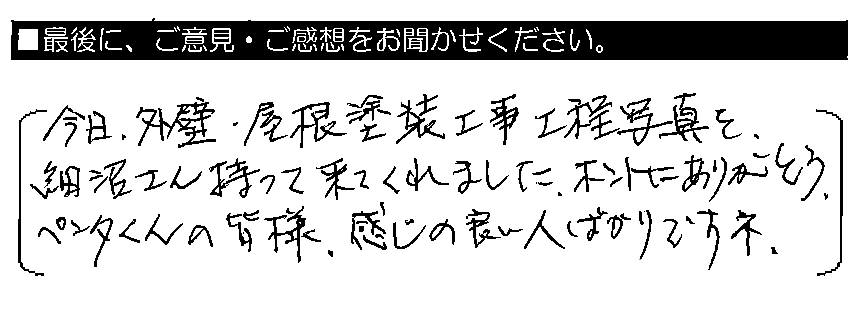 ■最後に、ご意見・ご感想をお聞かせください。
今日、外壁・屋根塗装工事工程写真を、
細沼さん持って来てくれました、ホントにありがとう、
ペンタくんの皆様、感じの良い人ばかりですネ、